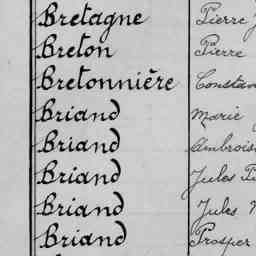 Bretagne Pierre
Breton Pierre
Bretonnière
Briand Marie
Briand
Briand Jules
Briand Jules
Briand Prosper